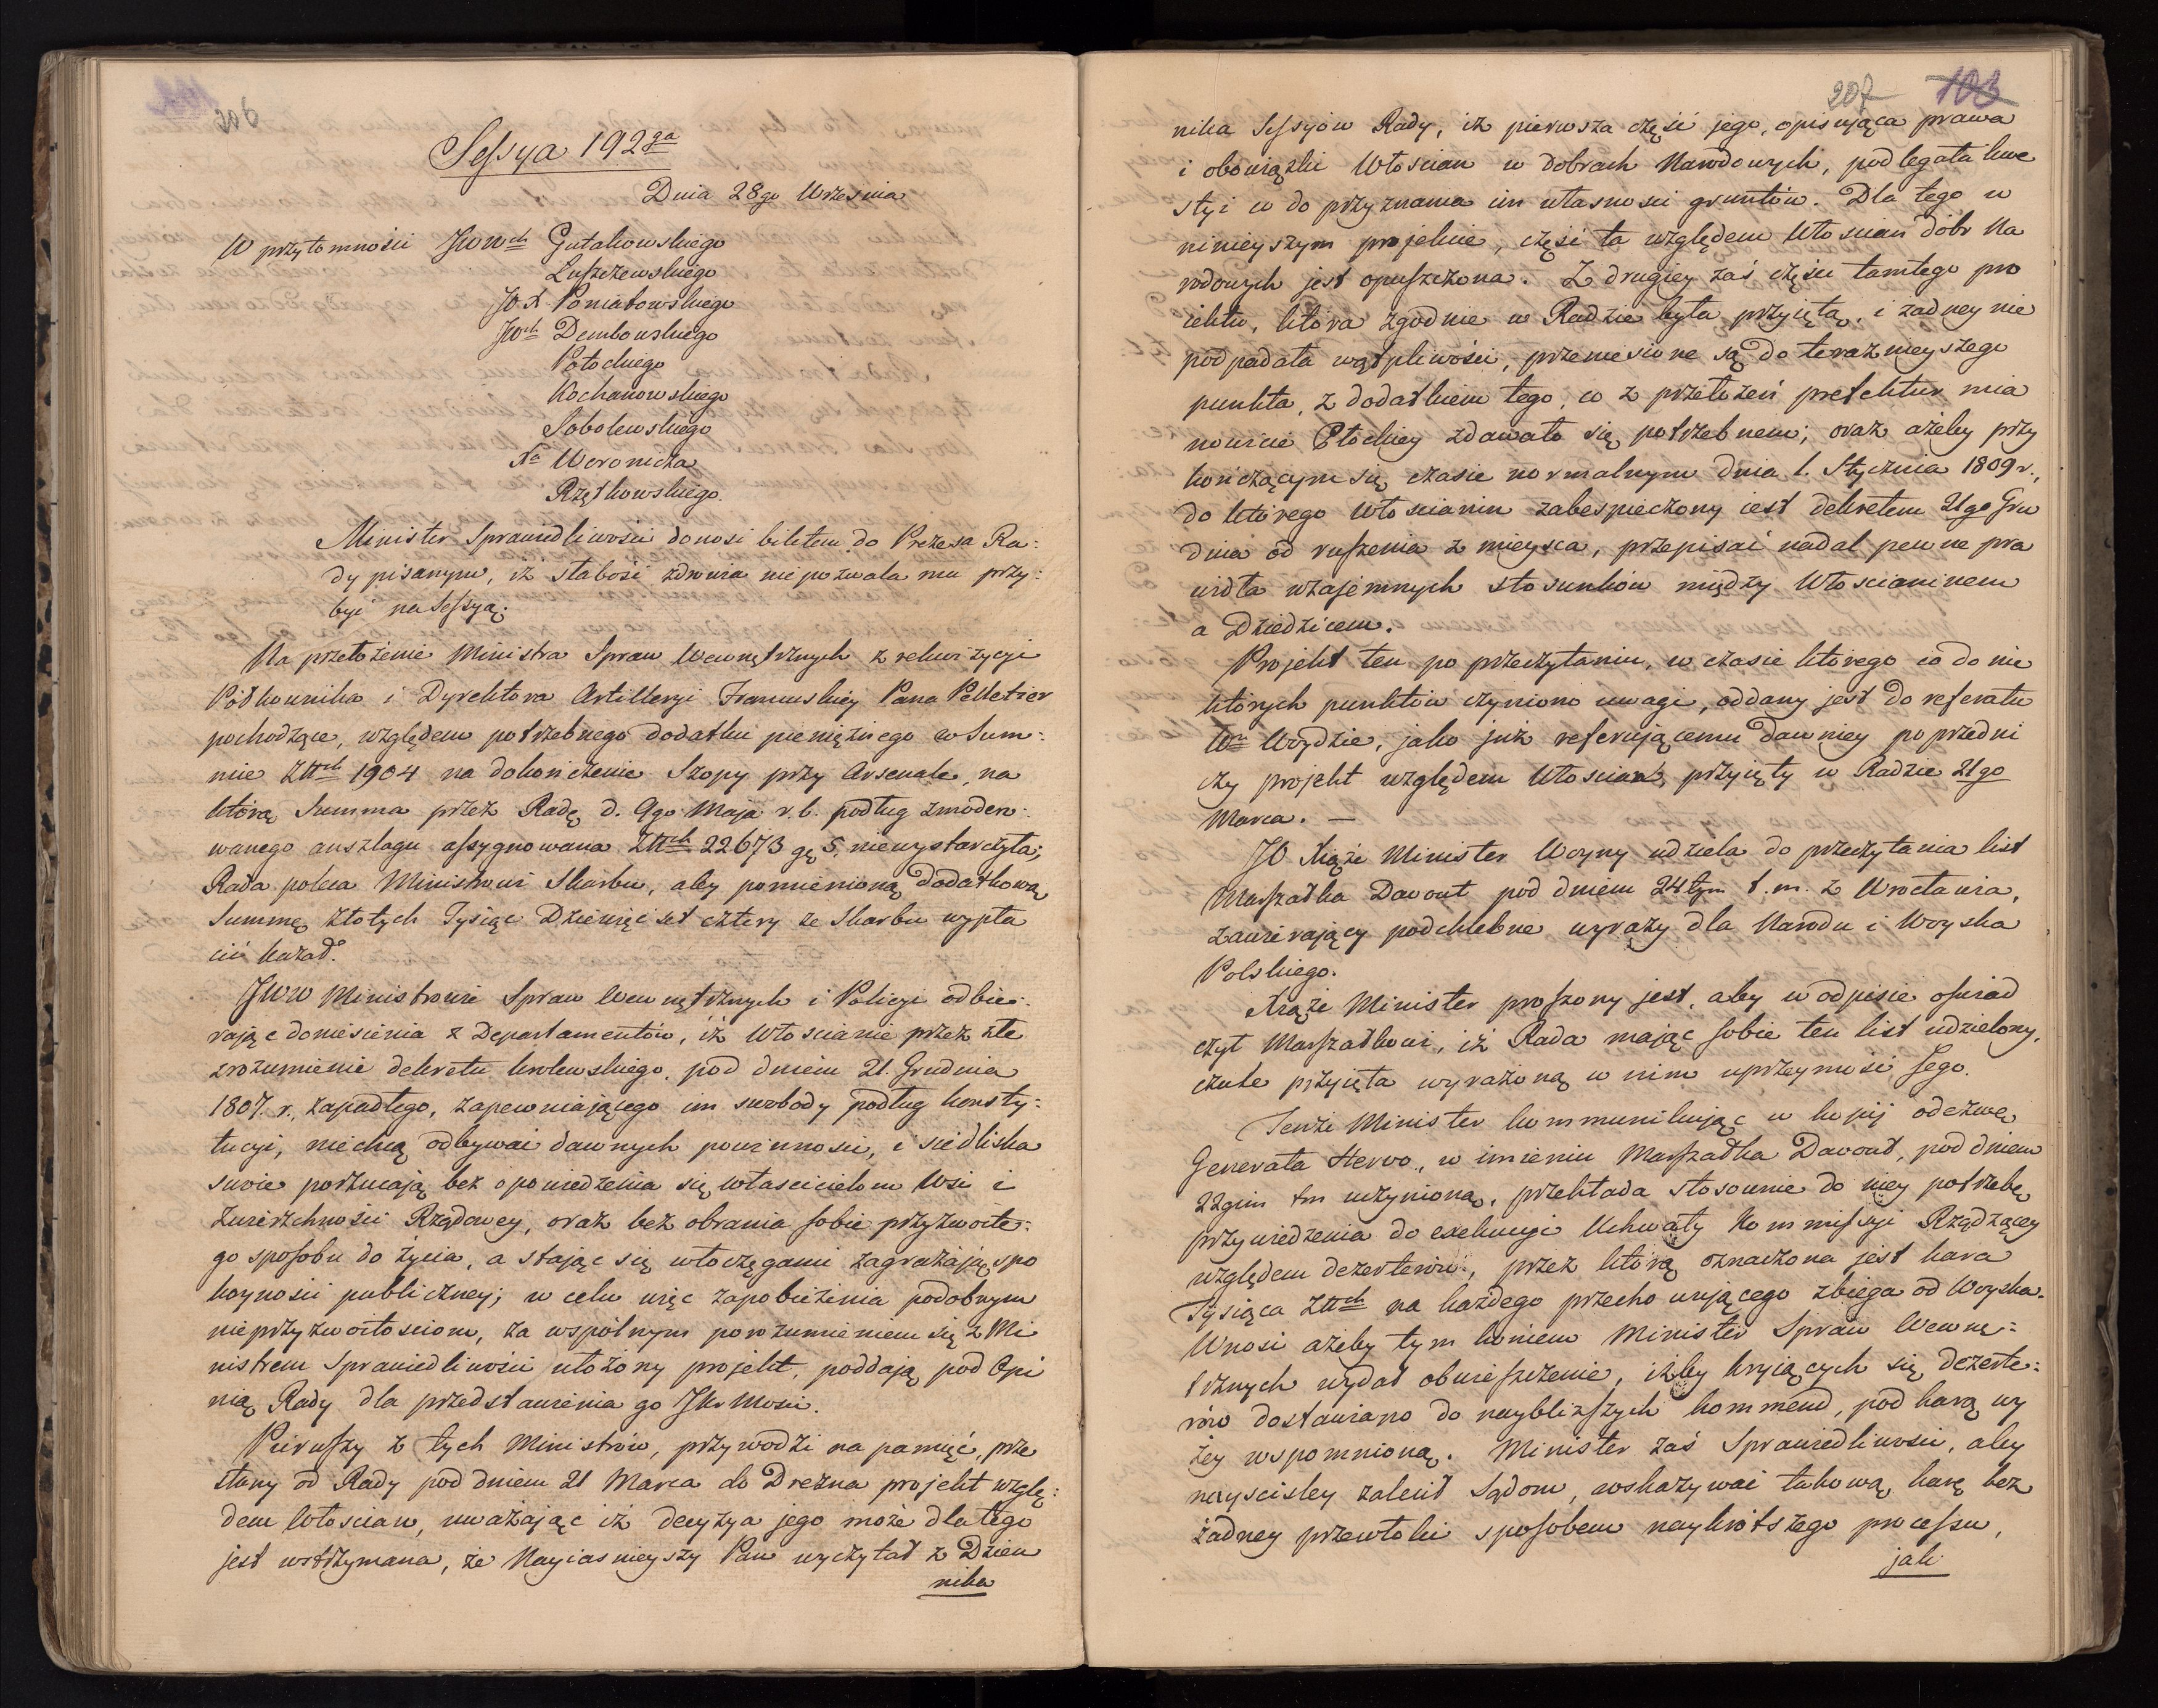 206
Sessya 192ga
Dnia 28go Września
W przytomności JWWch Gutakowskiego
Łuszczewskiego
JO X Poniatowskiego
JWch Dembowskiego
Potockiego
Kochanowskiego
Sobolewskiego
Xa Woronicza
Rzętkowskiego.
Minister Sprawiedliwości donosi biletem do Prezesa Ra:
dy pisanym, iż słabość zdrowia nie pozwala mu przy:
być na Sessyą.
Na przełożenie Ministra Spraw Wewnętrznych z rekwizycyi
Półkownika i Dyrektora Artilleryi Francuskiey Pana Pelletier
pochodzące, względem potrzebnego dodatku pieniężnego w Sum:
mie Złłch 1904 na dokończenie Szopy przy Arsenale, na
którą Summa przez Radę d. 9go Maja r.b. podług zmoder:
wanego anszlagu assygnowana Złłch 22673 gę 5. niewystarczyła;
Rada poleca Ministrowi Skarbu, aby pomienioną dodatkową
Summę złotych Tysiąc Dziewięćset cztery ze Skarbu wypła
cić kazał.
JWW Ministrowie Spraw Wewnętrznych i Policyi odbie:
rając doniesienia z Departamentów, iż Włoscianie przez złe
zrozumienie dekretu krolewskiego, pod dniem 21. Grudnia
1807. r. zapadłego, zapewniającego im swobody podług konsty:
tucyi, niechcą odbywać dawnych powinności, i siedliska
swoie porzucają bez opowiedzenia się właścicielom Wsi i
Zwierzchności Rządowey, oraz bez obrania sobie przyzwoite:
go sposobu do życia, a stając się włóczęgami zagrażają spo
koyności publiczney; w celu więc zapobieżenia podobnym
nieprzyzwoitościom, za wspólnym porozumieniem się z Mi
nistrem Sprawiedliwości ułożony projekt, poddają pod Opi
nią Rady dla przedstawienia go JKr Mości.
Pierwszy z tych Ministrów, przywodzi na pamięć, prze
słany od Rady pod dniem 21 Marca do Drezna projekt wzglę:
dem Włoscian, uważając iż decyzya jego może dlatego
jest wstrzymana, że Nayiasnieyszy Pan wyczytał z Dzien
nika
207 103
nika Sessyów Rady, iż pierwsza część jego, opisująca prawa
i obowiązki Włoscian w dobrach Narodowych, podlegała kwe
styi co do przyznania im własności gruntów. Dla tego w
ninieyszym projekcie, część ta względem Włoscian dóbr Na
rodowych jest opuszczona. Z drugiey zaś części tamtego pro
iektu, która zgodnie w Radzie była przyjętą, i żadney nie
podpadała wątpliwości, przeniesione są do teraznieyszego
punkta, z dodatkiem tego, co z przełożeń prefektur mia
nowicie Płockiey zdawało się potrzebnem; oraz ażeby przy
kończącym się czasie normalnym dnia 1. Stycznia 1809 r.,
do którego Włoscianin zabespieczony iest dekretem 21go Gru
dnia od ruszenia z mieysca, przepisać nadal pewne pra
widła wzajemnych stosunków między Włoscianinem
a Dziedzicem.
Projekt ten po przeczytaniu, w czasie którego co do nie
których punktów czyniono uwagi, oddany jest do referatu
Wu Woydzie, jako już referującemu dawniey poprzedni
czy projekt względem Włoscian, przyięty w Radzie 21go
Marca. —
JO Xiąże Minister Woyny udziela do przeczytania list
Marszałka Davout pod dniem 24tym t.m. z Wrocławia,
zawierający podchlebne wyrazy dla Narodu i Woyska
Polskiego.
Xiąże Minister proszony jest, aby w odpisie oświad
czył Marszałkowi, iż Rada mając sobie ten list udzielony,
czule przyięła wyrażoną w nim uprzeymość Jego.
Tenże Minister kommunikując w kopij odezwę
Generała Hervo, w imieniu Marszałka Davout, pod dniem
22gim tm uczynioną, przekłada stosownie do niey potrzebę
przywiedzenia do exekucyi Uchwały Kommissyi Rządzącey
względem dezerterów, przez którą oznaczona jest kara
Tysiąca Złłch na każdego przechowującego zbiega od Woyska.
Wnosi ażeby tym końcem Minister Spraw Wewnę:
trznych wydał obwieszczenie, iżby kryjących się dezerte:
rów dostawiano do naybliższych kommend, pod karą wy
żey wspomnioną. Minister zaś Sprawiedliwości, aby
nayscisley zalecił Sądom, wskazywać takową karę bez
żadney przewłoki sposobem naykrótszego processu,
jak